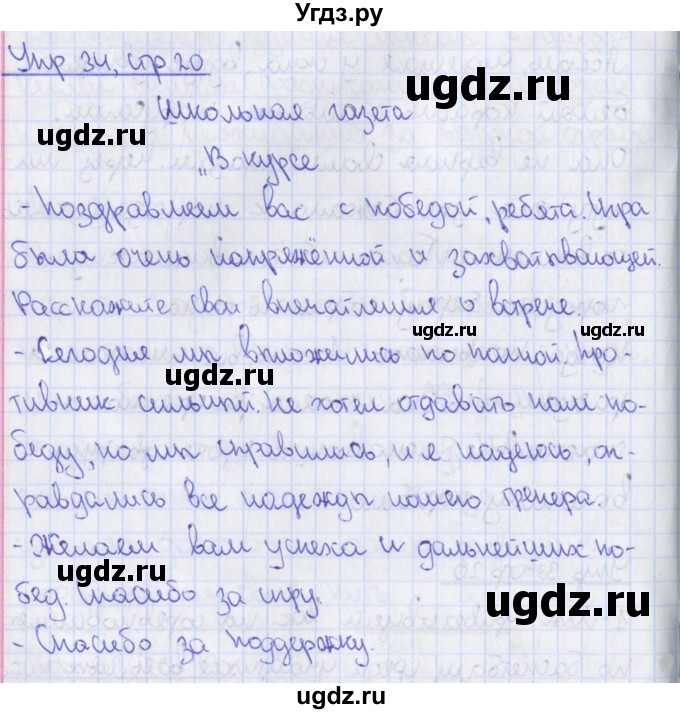 Угдз.ру
Упр 34, стр 20
ugdz.ru
Школьная газета
ugdz.ru
„В курсе
- Поздравляем вас с победой, ребята. Игра
была очень напряжённой и захватывающей.
Расскажите свои впечатления о встрече.
ugdz.ru
ugdz.ru
- Сегодня мы выложились по полной. Про-
ugdz.ru
тивник сильный, не хотел отдавать нам по-
беду, но мы справились, и я надеюсь, оп-
равдались все надежды нашего тренера.
- Желаем вам успеха и дальнейших по-
ugdz.ru
бед. Спасибо за игру.
ugdz.ru
- Спасибо за поддержку.
ugdz.ru